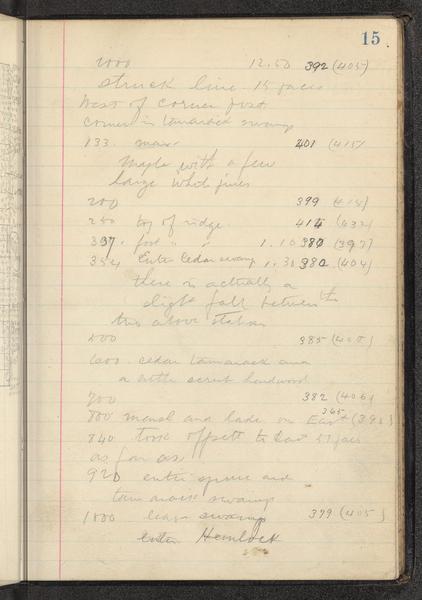 15
1000 12.50 392 (405)
struck line 15 paces
West of corner post
corner in tamarack swamp
133. max 401 (415)
Maple with a few
large white pines
200 399 (414)
250 top of ridge. 414 (432)
337. foot " " 1.10 380 (397)
354 Enter Cedar swamp 1.30 380 (404)
there is actually a
slight fall between the
two above stations
500 385 (408)
600. cedar tamarack and
a little scrub hardwood
700 382 (406)
800 marsh and lake on East 365 (390)
840 took offsett to East 57 paces
as far as
920 enter spruce and
tamarack swamp
1000 leave swamp 379 (405)
enter Hemlock